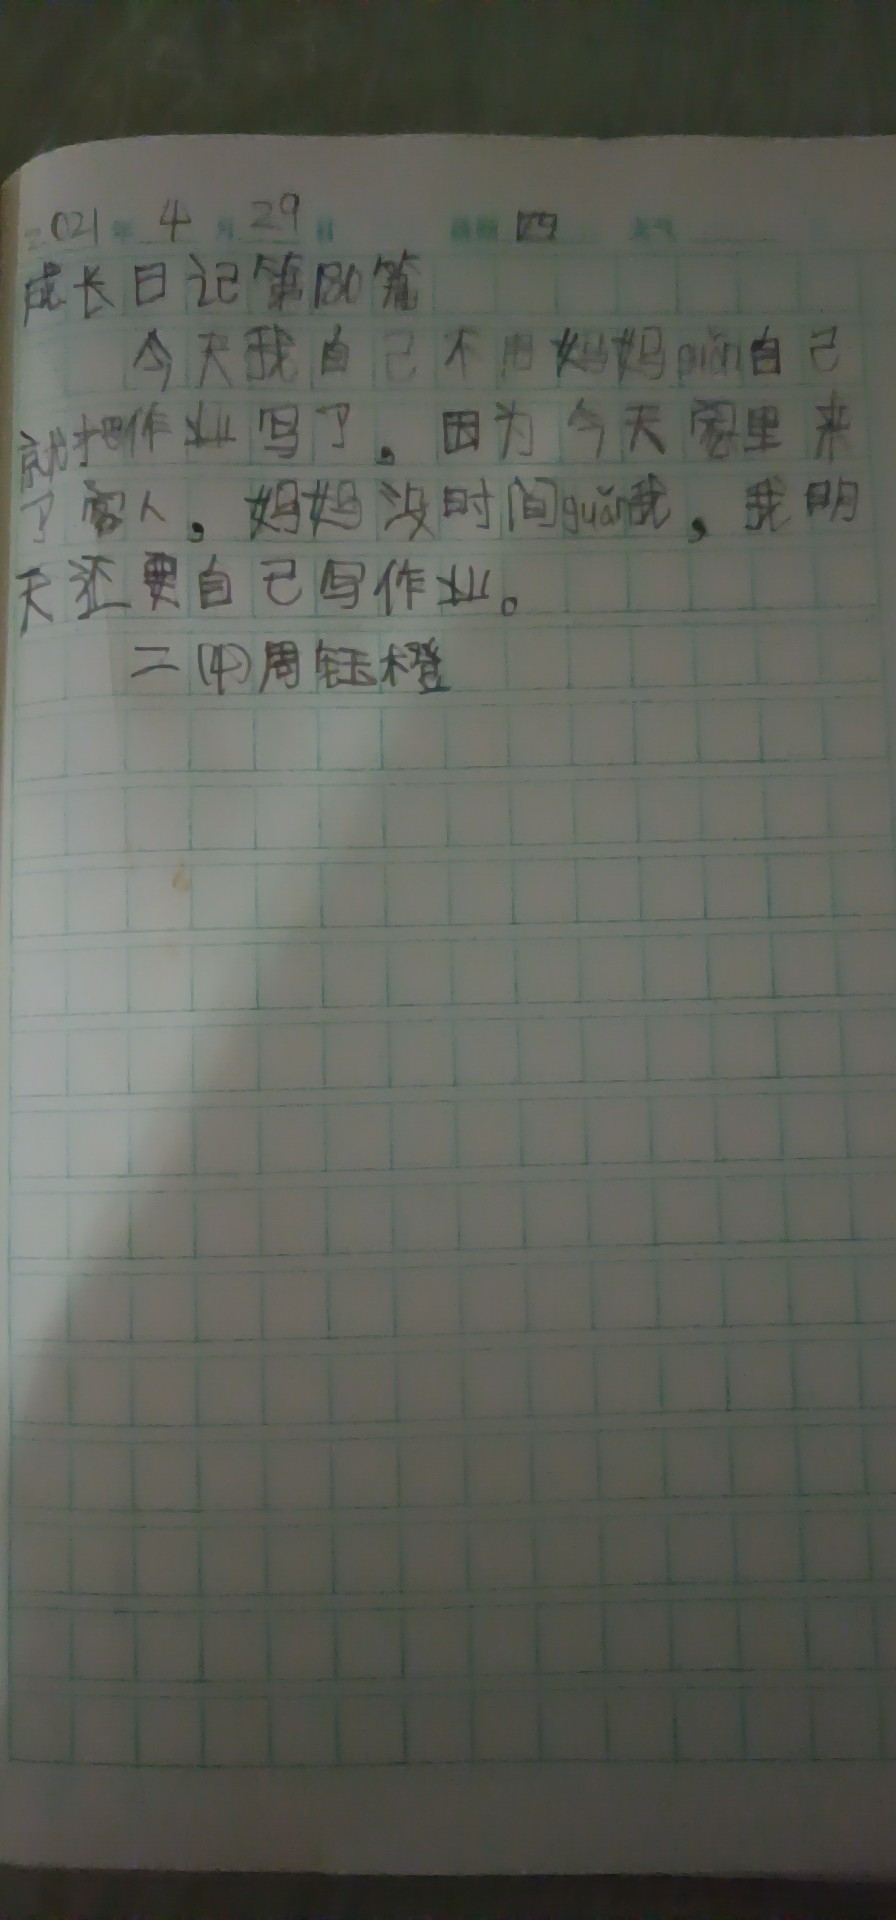 2021年 4月29日 星期四 天气
成长日记第180篇
今天我自己不用妈妈guǎn自己
就把作业写了。因为今天家里来
了客人，妈妈没时间guǎn我，我明
天还要自己写作业。
二(4)周钰橙